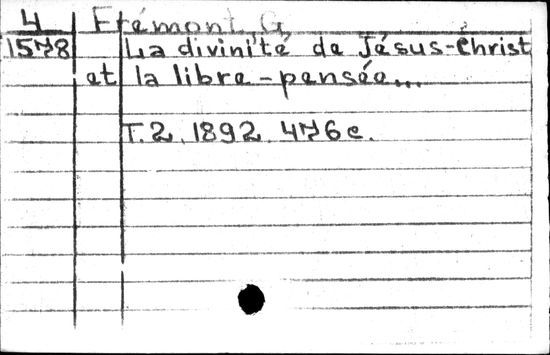 4 Frémont, G.
1578 La divinité de Jésus-Christ
et la libre-pensée...
T.2. 1892. 476 c.